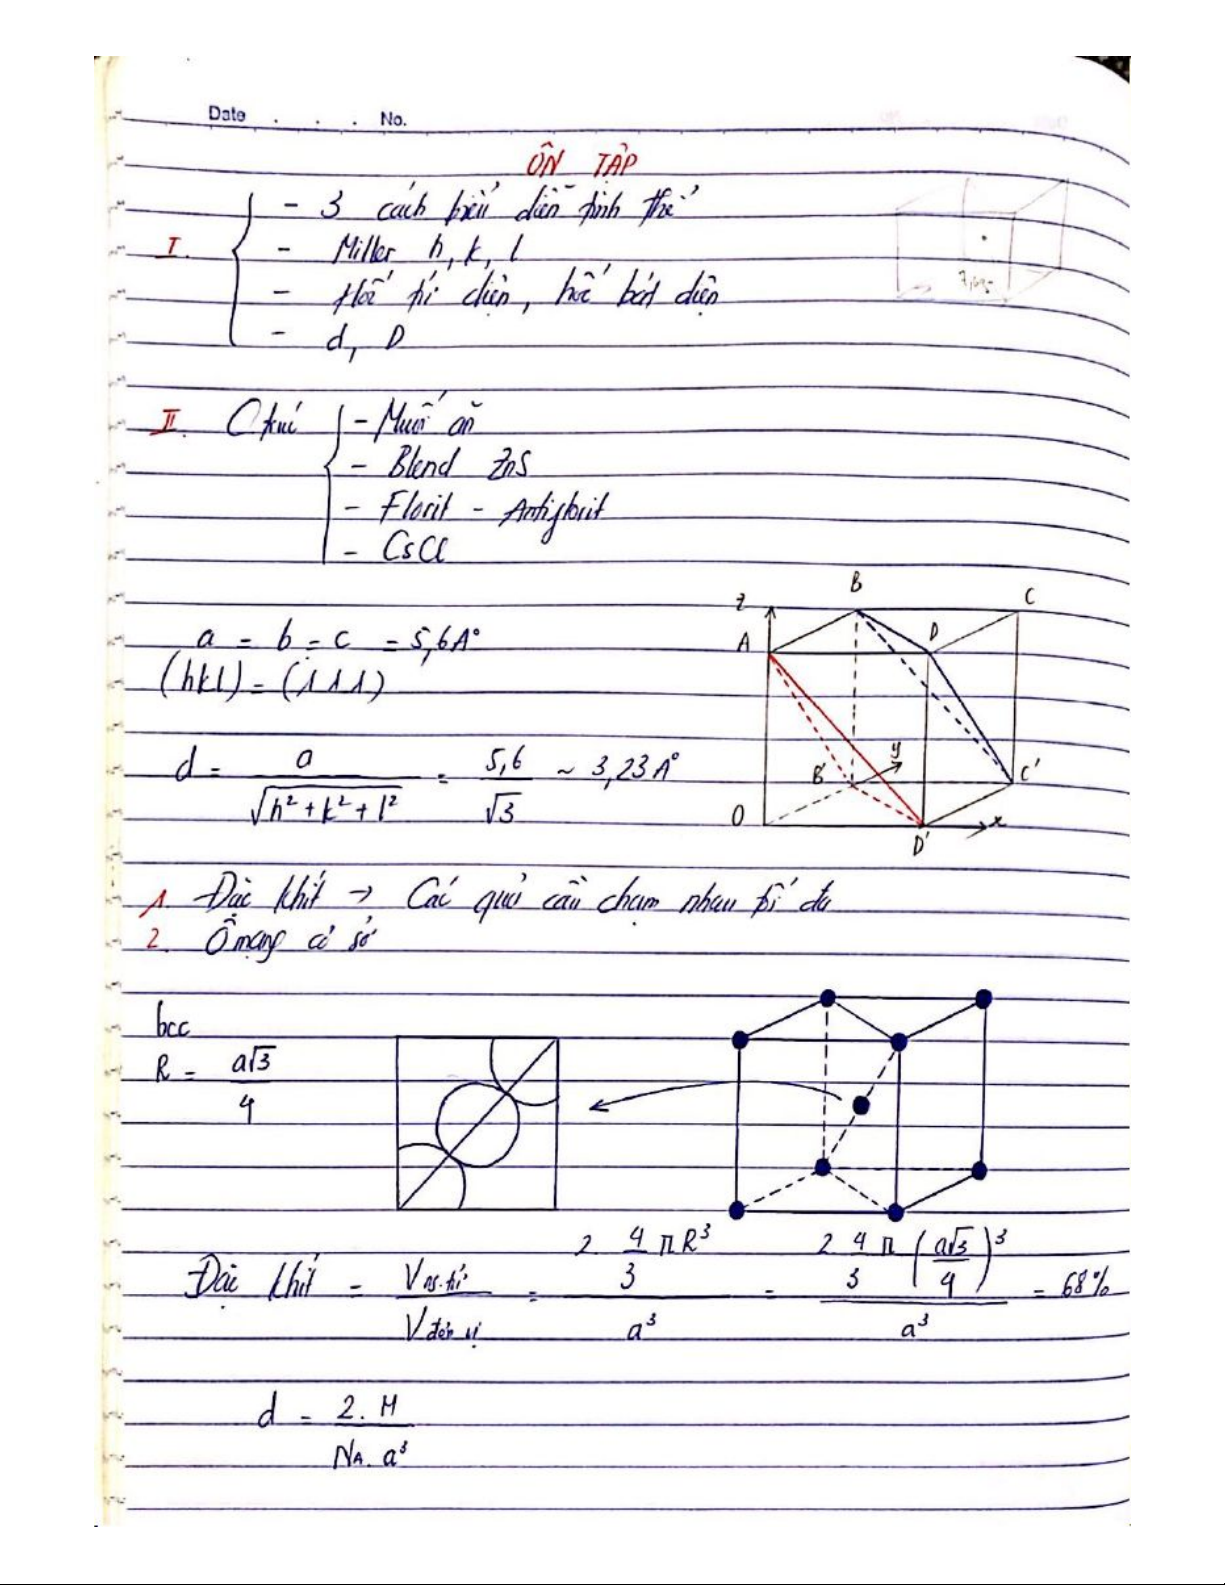 Date . . . No.
ÔN TẬP
I. - 3 cách biểu diễn tinh thể
- Miller h, k, l
- Hố tứ diện, hố bát diện
- d, D
II. Ctrúc - Muối ăn
- Blend ZnS
- Florit - Antiflorit
- CsCl
a = b = c = 5,6A°
(hkl) = (111)
d = a / √h² + k² + l² = 5,6 / √3 ~ 3,23A°
z B C
A D
B' y C'
O D' x
1. Đặc khít → Các quả cầu chạm nhau tối đa
2. Ô mạng cơ sở
bcc
R = a√3 / 4
Đặc khít = V ng.tử / V đơn vị = 2 4/3 π R³ / a³ = 2 4/3 π (a√3/4)³ / a³ = 68%
d = 2. M / NA. a³